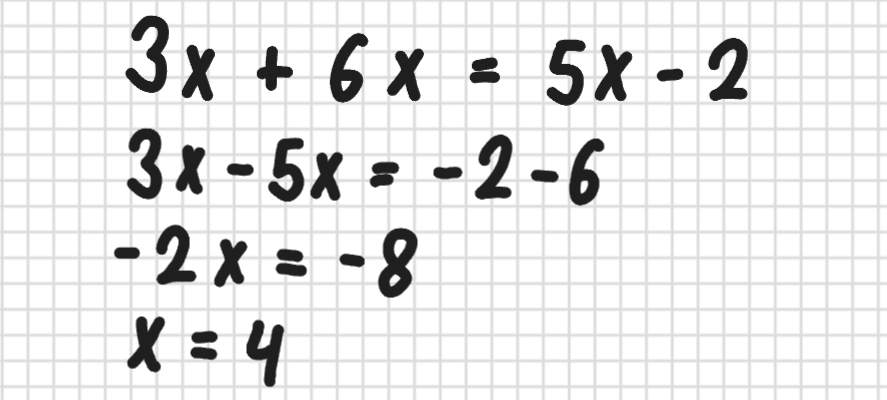 3x + 6x = 5x - 2
3x - 5x = -2 - 6
-2x = -8
x = 4